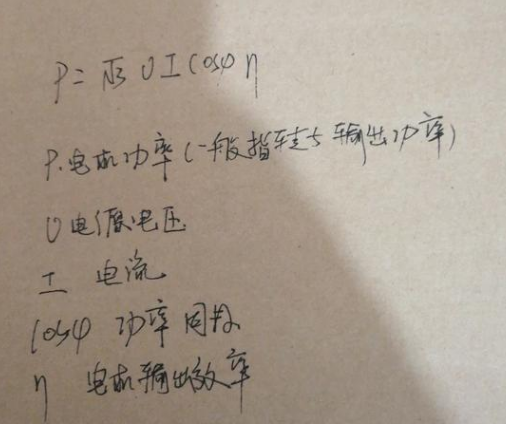 P=√3 UI cosφ η
P.电机功率(一般指轴输出功率)
U 电源电压
I 电流
cosφ 功率因数
η 电机输出效率